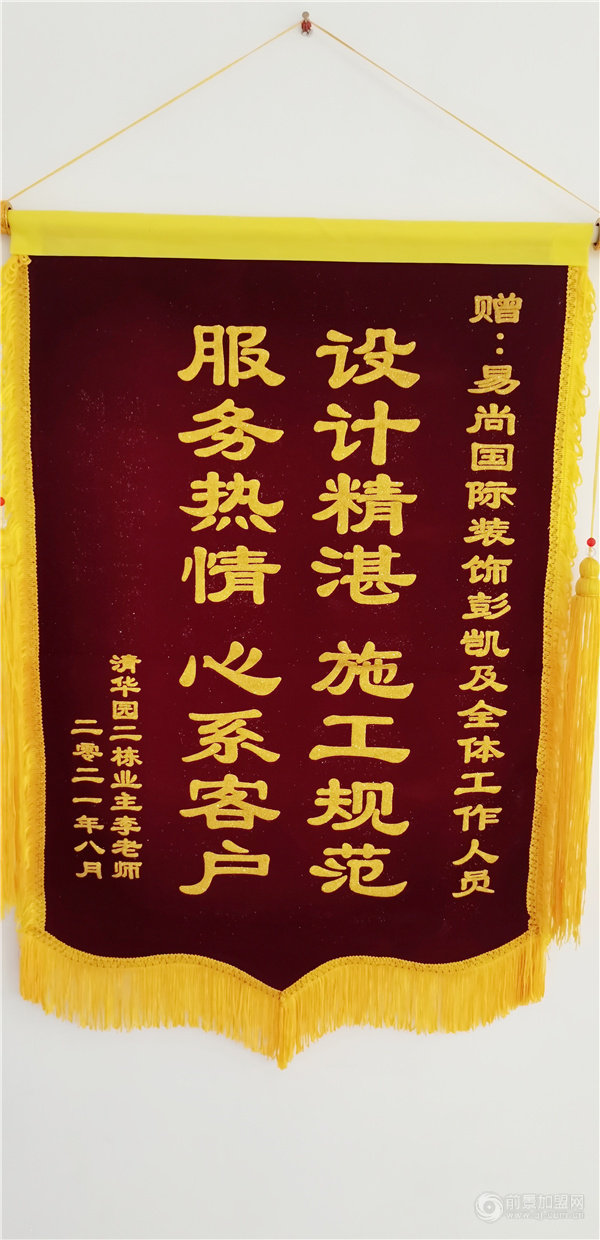 赠：易尚国际装饰彭凯及全体工作人员
设计精湛 施工规范
服务热情 心系客户
清华园二栋业主李老师
二零二一年八月
前景加盟网
www.qj.com.cn